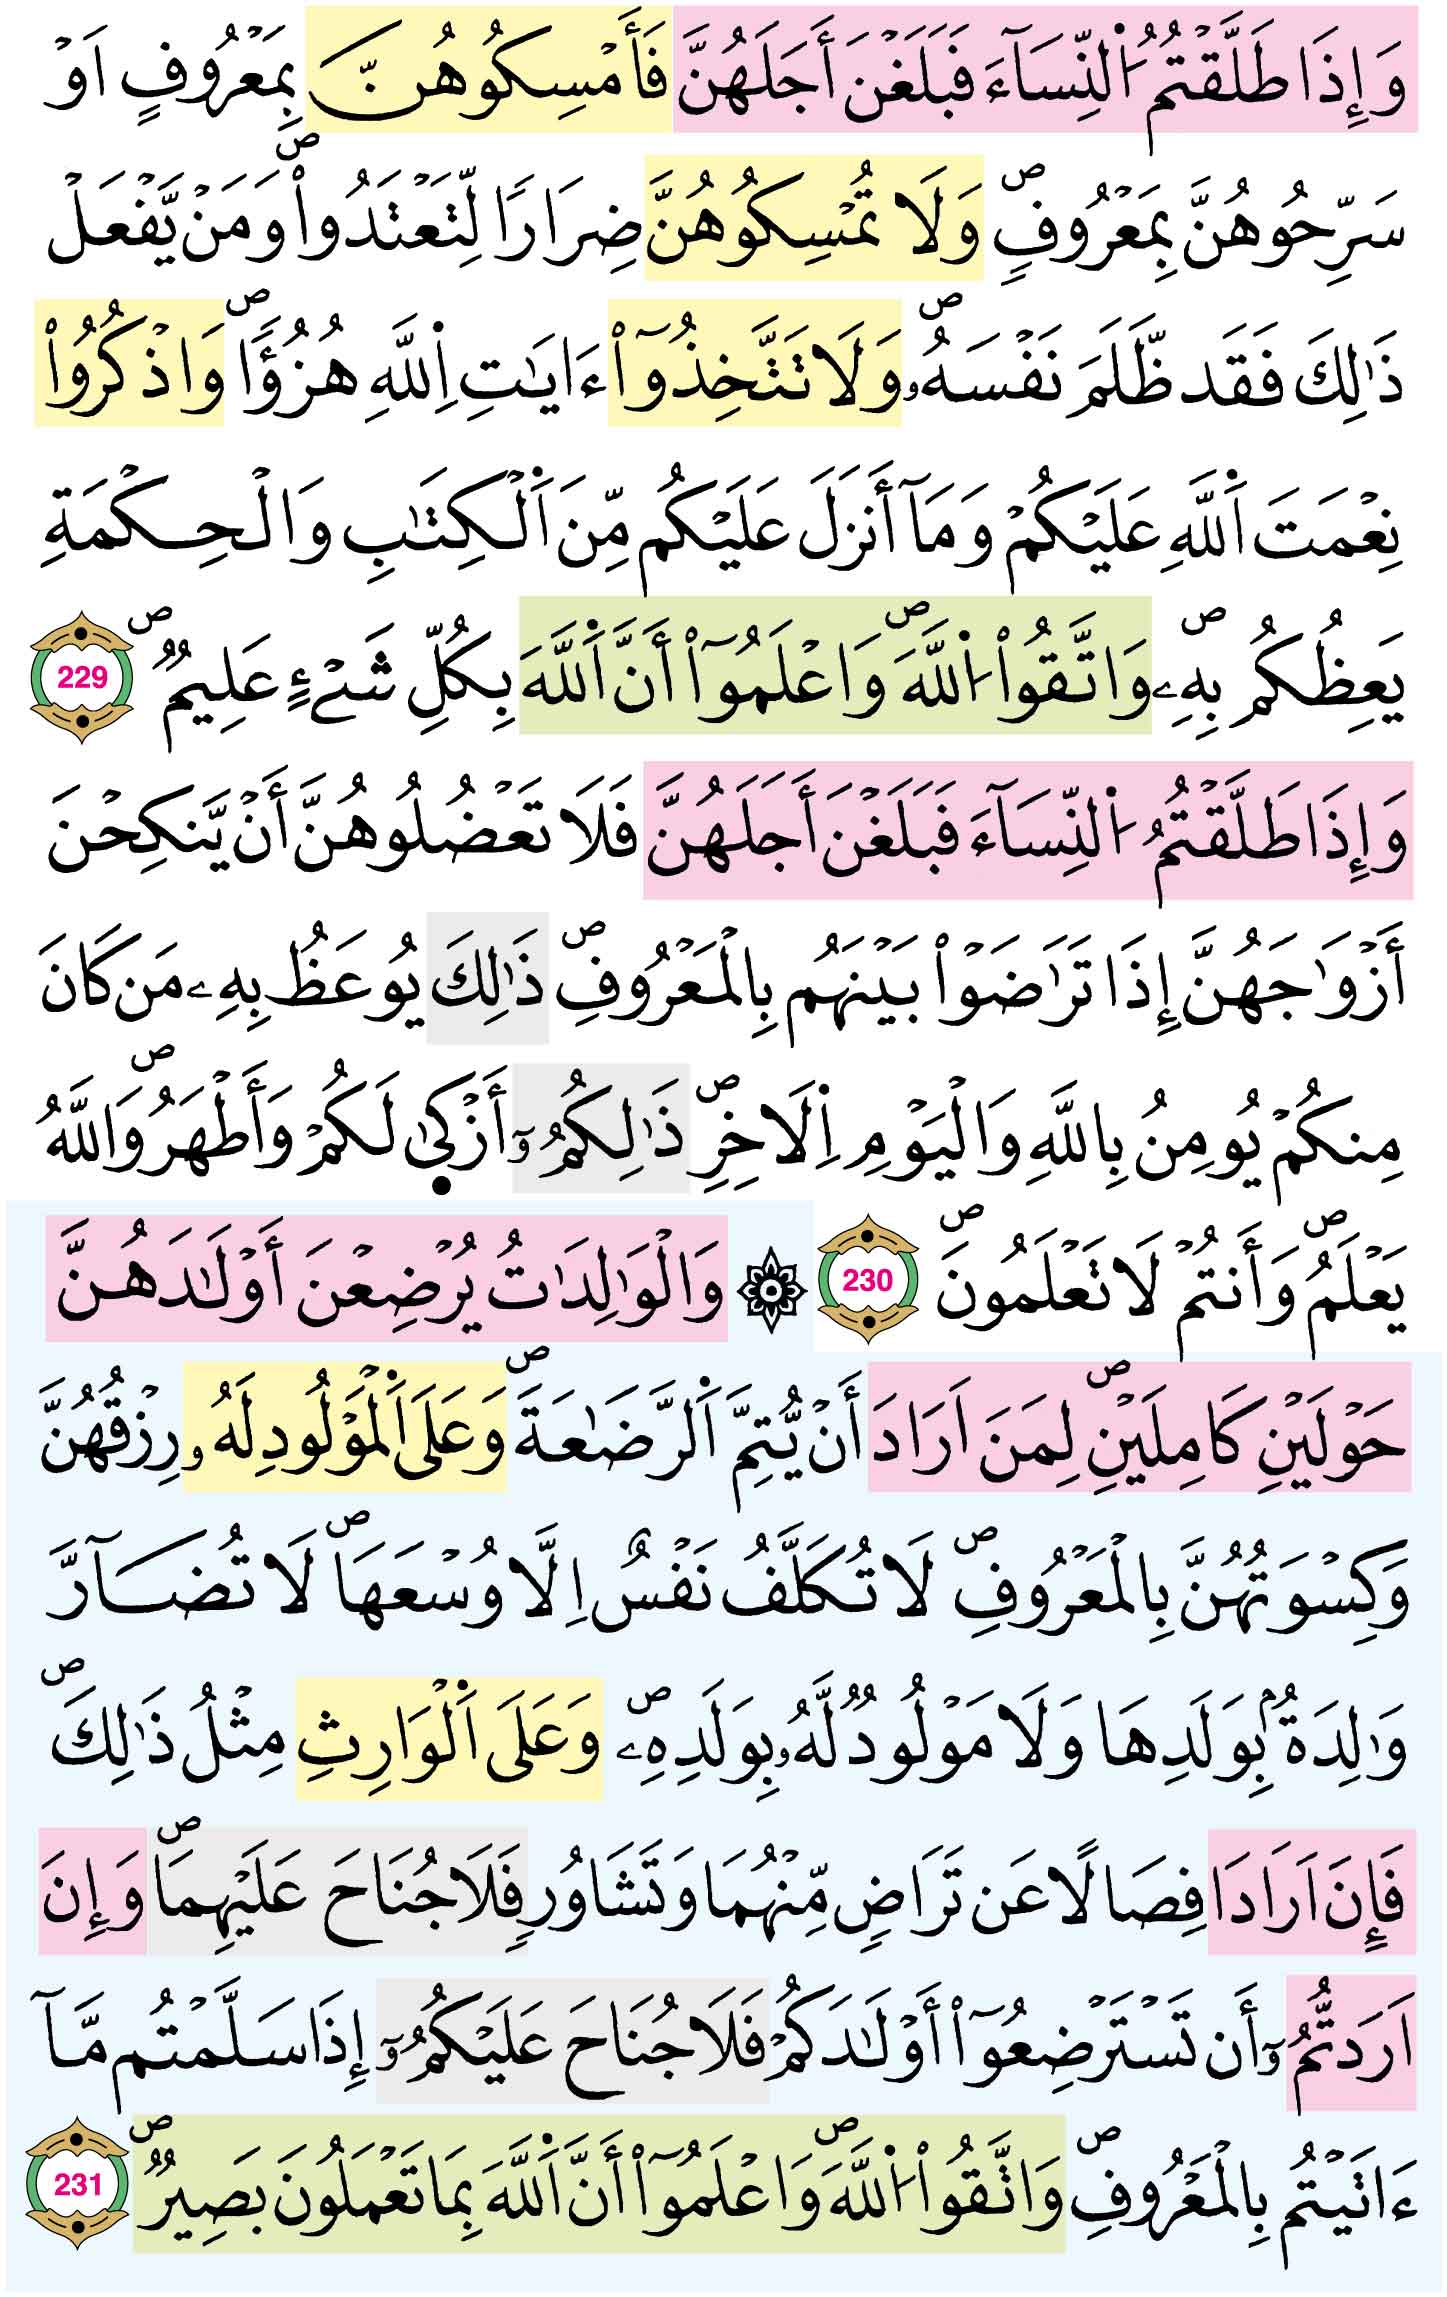 وَإِذَا طَلَّقْتُمُ اُ۬لنِّسَآءَ فَبَلَغْنَ أَجَلَهُنَّ فَأَمْسِكُوهُنَّ بِمَعْرُوفٍ اَوْ
سَرِّحُوهُنَّ بِمَعْرُوفٖۖ وَلَا تُمْسِكُوهُنَّ ضِرَارٗا لِّتَعْتَدُواْۖ وَمَنْ يَّفْعَلْ
ذَٰلِكَ فَقَد ظَّلَمَ نَفْسَهُۥۖ وَلَا تَتَّخِذُوٓاْ ءَايَٰتِ اِ۬للَّهِ هُزُؤٗاۖ وَاذْكُرُواْ
نِعْمَتَ اَ۬للَّهِ عَلَيْكُمْ وَمَآ أَنزَلَ عَلَيْكُم مِّنَ اَ۬لْكِتَٰبِ وَالْحِكْمَةِ
يَعِظُكُم بِهِۦۖ وَاتَّقُواْ اُ۬للَّهَۖ وَاعْلَمُوٓاْ أَنَّ اَ۬للَّهَ بِكُلِّ شَےْءٍ عَلِيمٞۖ 229
وَإِذَا طَلَّقْتُمُ اُ۬لنِّسَآءَ فَبَلَغْنَ أَجَلَهُنَّ فَلَا تَعْضُلُوهُنَّ أَنْ يَّنكِحْنَ
أَزْوَٰجَهُنَّ إِذَا تَرَٰضَوْاْ بَيْنَهُم بِالْمَعْرُوفِۖ ذَٰلِكَ يُوعَظُ بِهِۦ مَن كَانَ
مِنكُمْ يُومِنُ بِاللَّهِ وَالْيَوْمِ اِ۬لَاخِرِۖ ذَٰلِكُمُۥٓ أَزْك۪يٰ لَكُمْ وَأَطْهَرُۖ وَاللَّهُ
يَعْلَمُۖ وَأَنتُمْ لَا تَعْلَمُونَۖ 230 ۞ وَالْوَٰلِدَٰتُ يُرْضِعْنَ أَوْلَٰدَهُنَّ
حَوْلَيْنِ كَامِلَيْنِۖ لِمَنَ اَرَادَ أَنْ يُّتِمَّ اَ۬لرَّضَٰعَةَۖ وَعَلَى اَ۬لْمَوْلُودِ لَهُۥ رِزْقُهُنَّ
وَكِسْوَتُهُنَّ بِالْمَعْرُوفِۖ لَا تُكَلَّفُ نَفْسٌ اِلَّا وُسْعَهَاۖ لَا تُضَآرَّ
وَٰلِدَةُۢ بِوَلَدِهَا وَلَا مَوْلُودٞ لَّهُۥ بِوَلَدِهِۦۖ وَعَلَى اَ۬لْوَارِثِ مِثْلُ ذَٰلِكَۖ
فَإِنَ اَرَادَا فِصَالًا عَن تَرَاضٖ مِّنْهُمَا وَتَشَاوُرٖ فَلَا جُنَاحَ عَلَيْهِمَاۖ وَإِنَ
اَرَدتُّمُۥٓ أَن تَسْتَرْضِعُوٓاْ أَوْلَٰدَكُمْ فَلَا جُنَاحَ عَلَيْكُمُۥٓ إِذَا سَلَّمْتُم مَّآ
ءَاتَيْتُم بِالْمَعْرُوفِۖ وَاتَّقُواْ اُ۬للَّهَۖ وَاعْلَمُوٓاْ أَنَّ اَ۬للَّهَ بِمَا تَعْمَلُونَ بَصِيرٞۖ 231